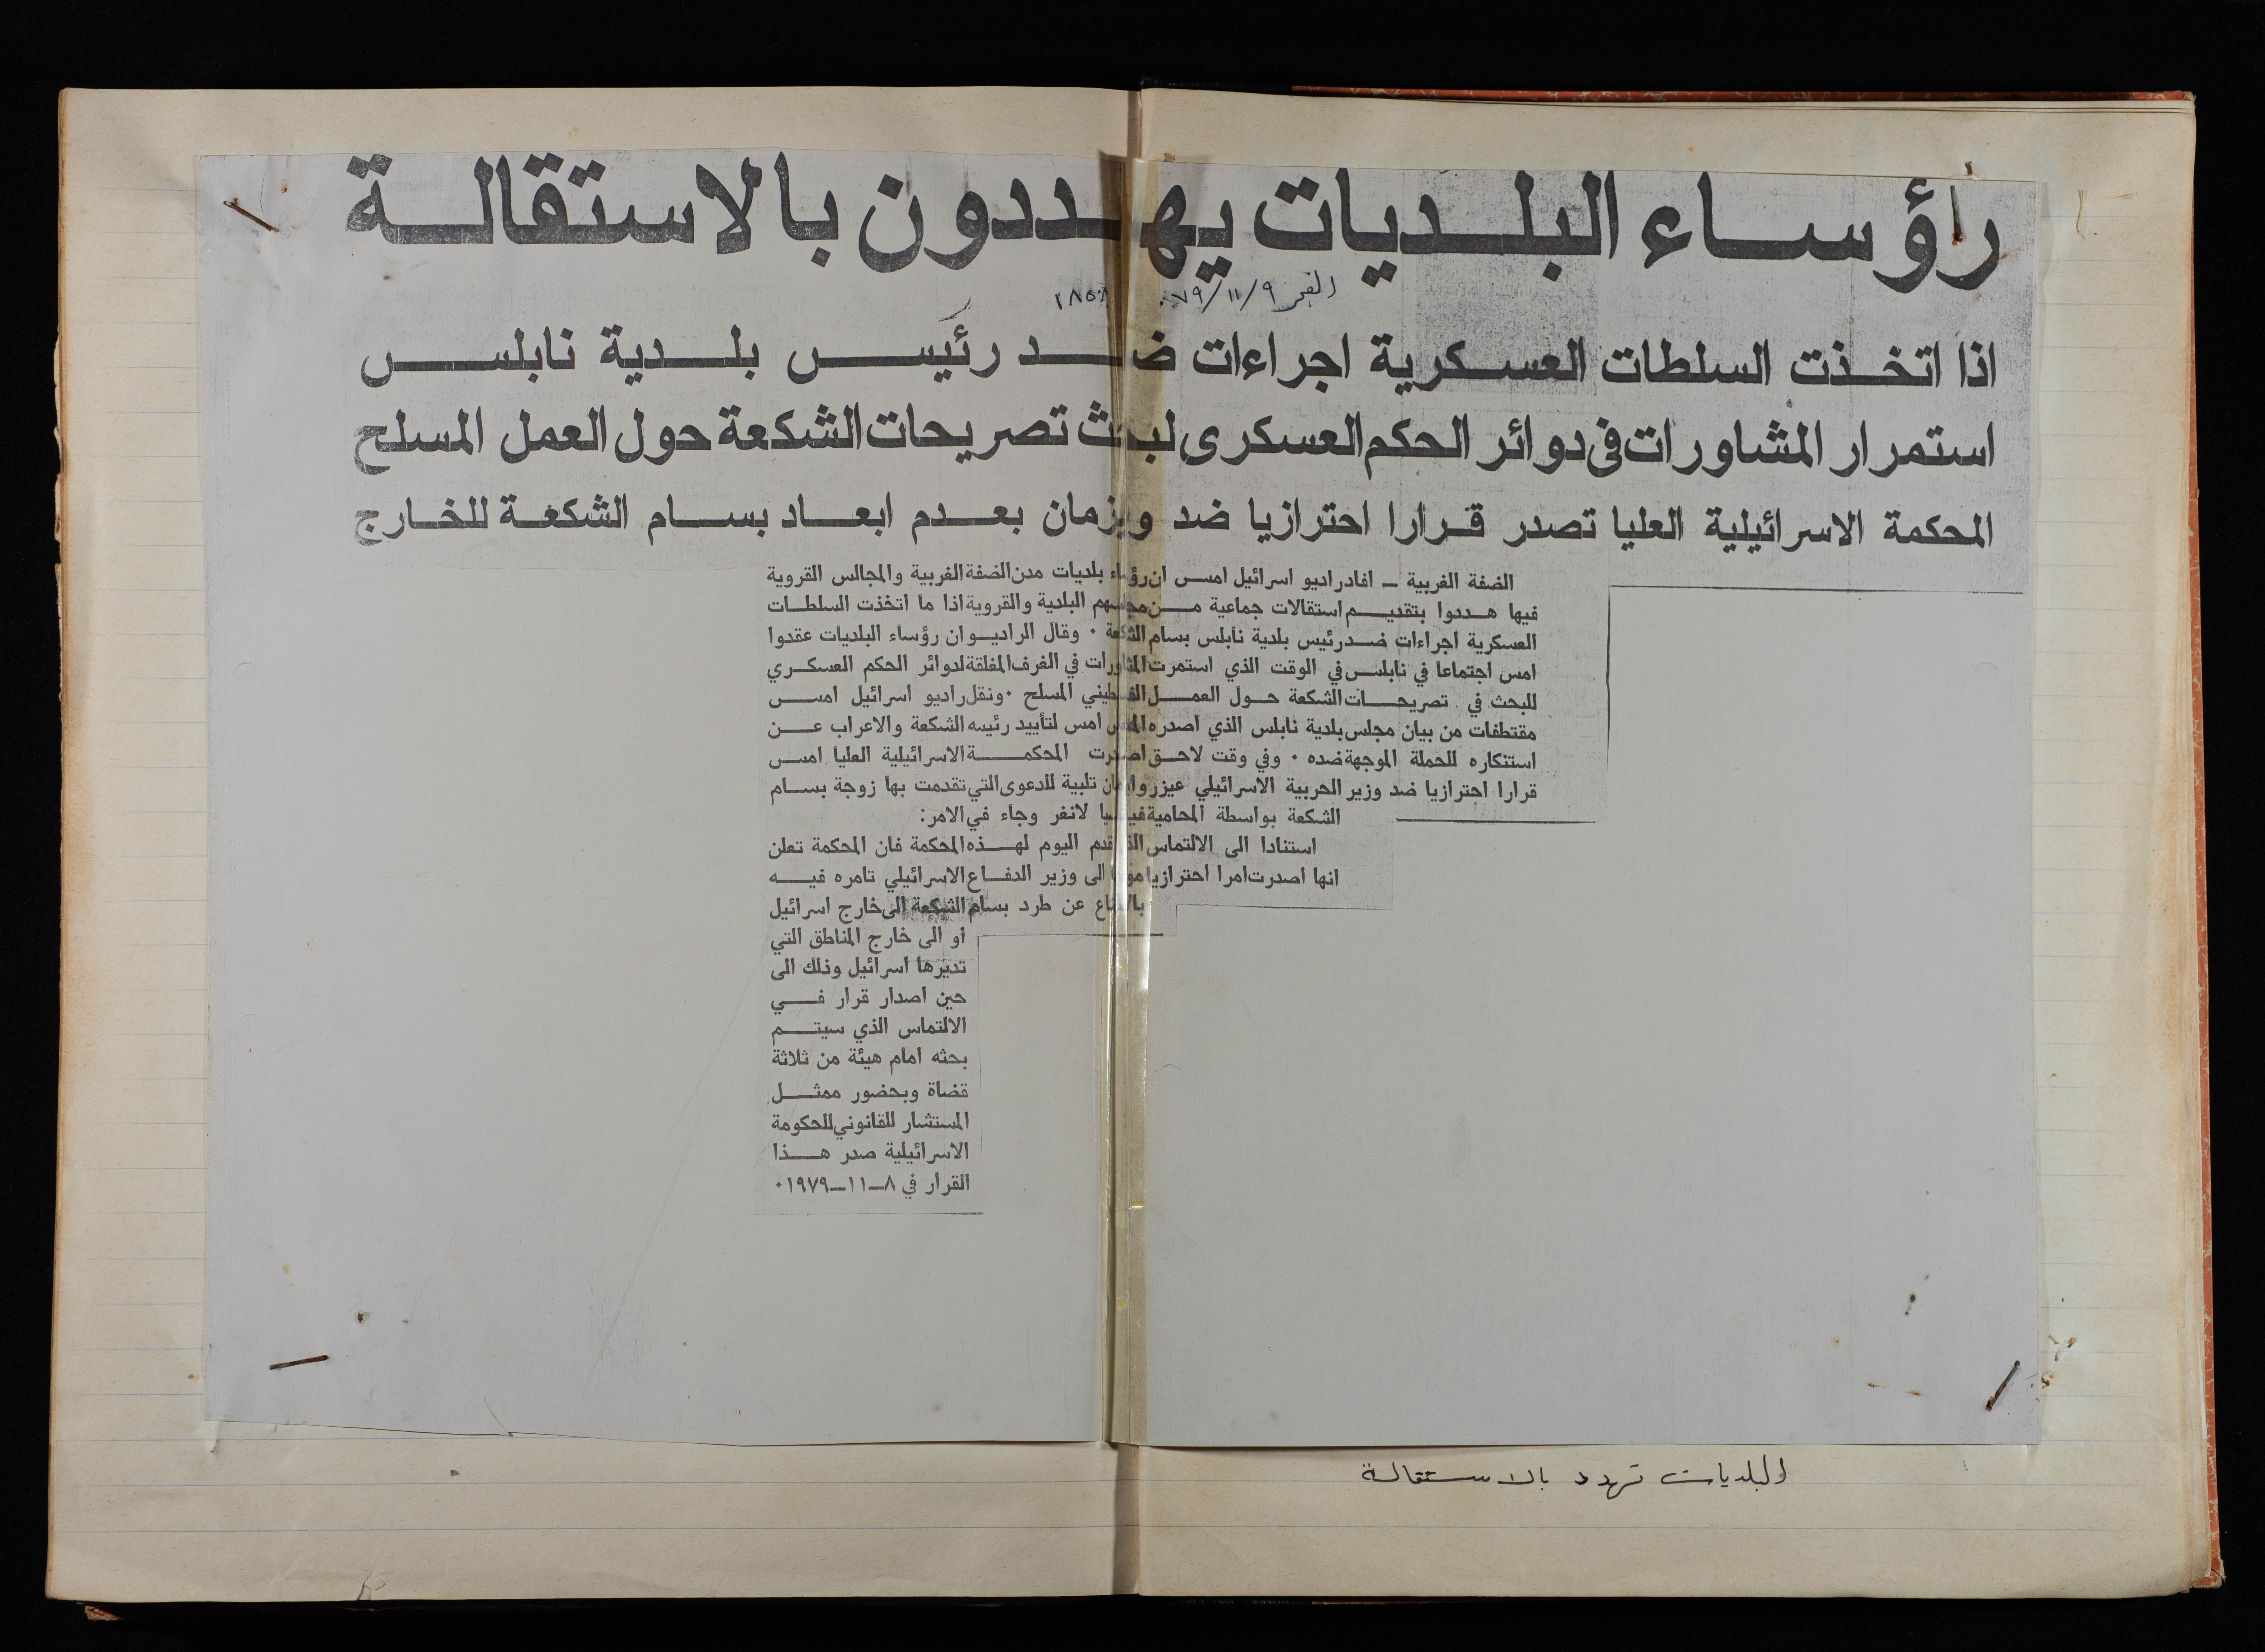 رؤساء البلديات يهددون بالاستقالة
الفجر ٧٩/١١/٩
اذا اتخذت السلطات العسكرية اجراءات ضد رئيس بلدية نابلس
استمرار المشاورات فى دوائر الحكم العسكرى لبحث تصريحات الشكعة حول العمل المسلح
المحكمة الاسرائيلية العليا تصدر قرارا احترازيا ضد وايزمان بعدم ابعاد بسام الشكعة للخارج
الضفة الغربية - افاد راديو اسرائيل امس ان رؤساء بلديات مدن الضفة الغربية والمجالس القروية
فيها هددوا بتقديم استقالات جماعية من مجالسهم البلدية والقروية اذا ما اتخذت السلطات
العسكرية اجراءات ضد رئيس بلدية نابلس بسام الشكعة ٠ وقال الراديو ان رؤساء البلديات عقدوا
امس اجتماعا في نابلس في الوقت الذي استمرت المشاورات في الغرف المغلقة لدوائر الحكم العسكري
للبحث في تصريحات الشكعة حول العمل الفلسطيني المسلح ٠ ونقل راديو اسرائيل امس
مقتطفات من بيان مجلس بلدية نابلس الذي اصدره المجلس امس لتأييد رئيسه الشكعة والاعراب عن
استنكاره للحملة الموجهة ضده ٠ وفي وقت لاحق اصدرت المحكمة الاسرائيلية العليا امس
قرارا احترازيا ضد وزير الحربية الاسرائيلي عيزر وايزمان تلبية للدعوى التي تقدمت بها زوجة بسام
الشكعة بواسطة المحامية فيليسيا لانغر وجاء في الامر:
استنادا الى الالتماس الذي قدم اليوم لهذه المحكمة فان المحكمة تعلن
انها اصدرت امرا احترازيا موجها الى وزير الدفاع الاسرائيلي تامره فيه
بالامتناع عن طرد بسام الشكعة الى خارج اسرائيل
أو الى خارج المناطق التي
تديرها اسرائيل وذلك الى
حين اصدار قرار في
الالتماس الذي سيتم
بحثه امام هيئة من ثلاثة
قضاة وبحضور ممثل
المستشار القانوني للحكومة
الاسرائيلية صدر هذا
القرار في ٨-١١-١٩٧٩٠
البلديات تهدد بالاستقالة